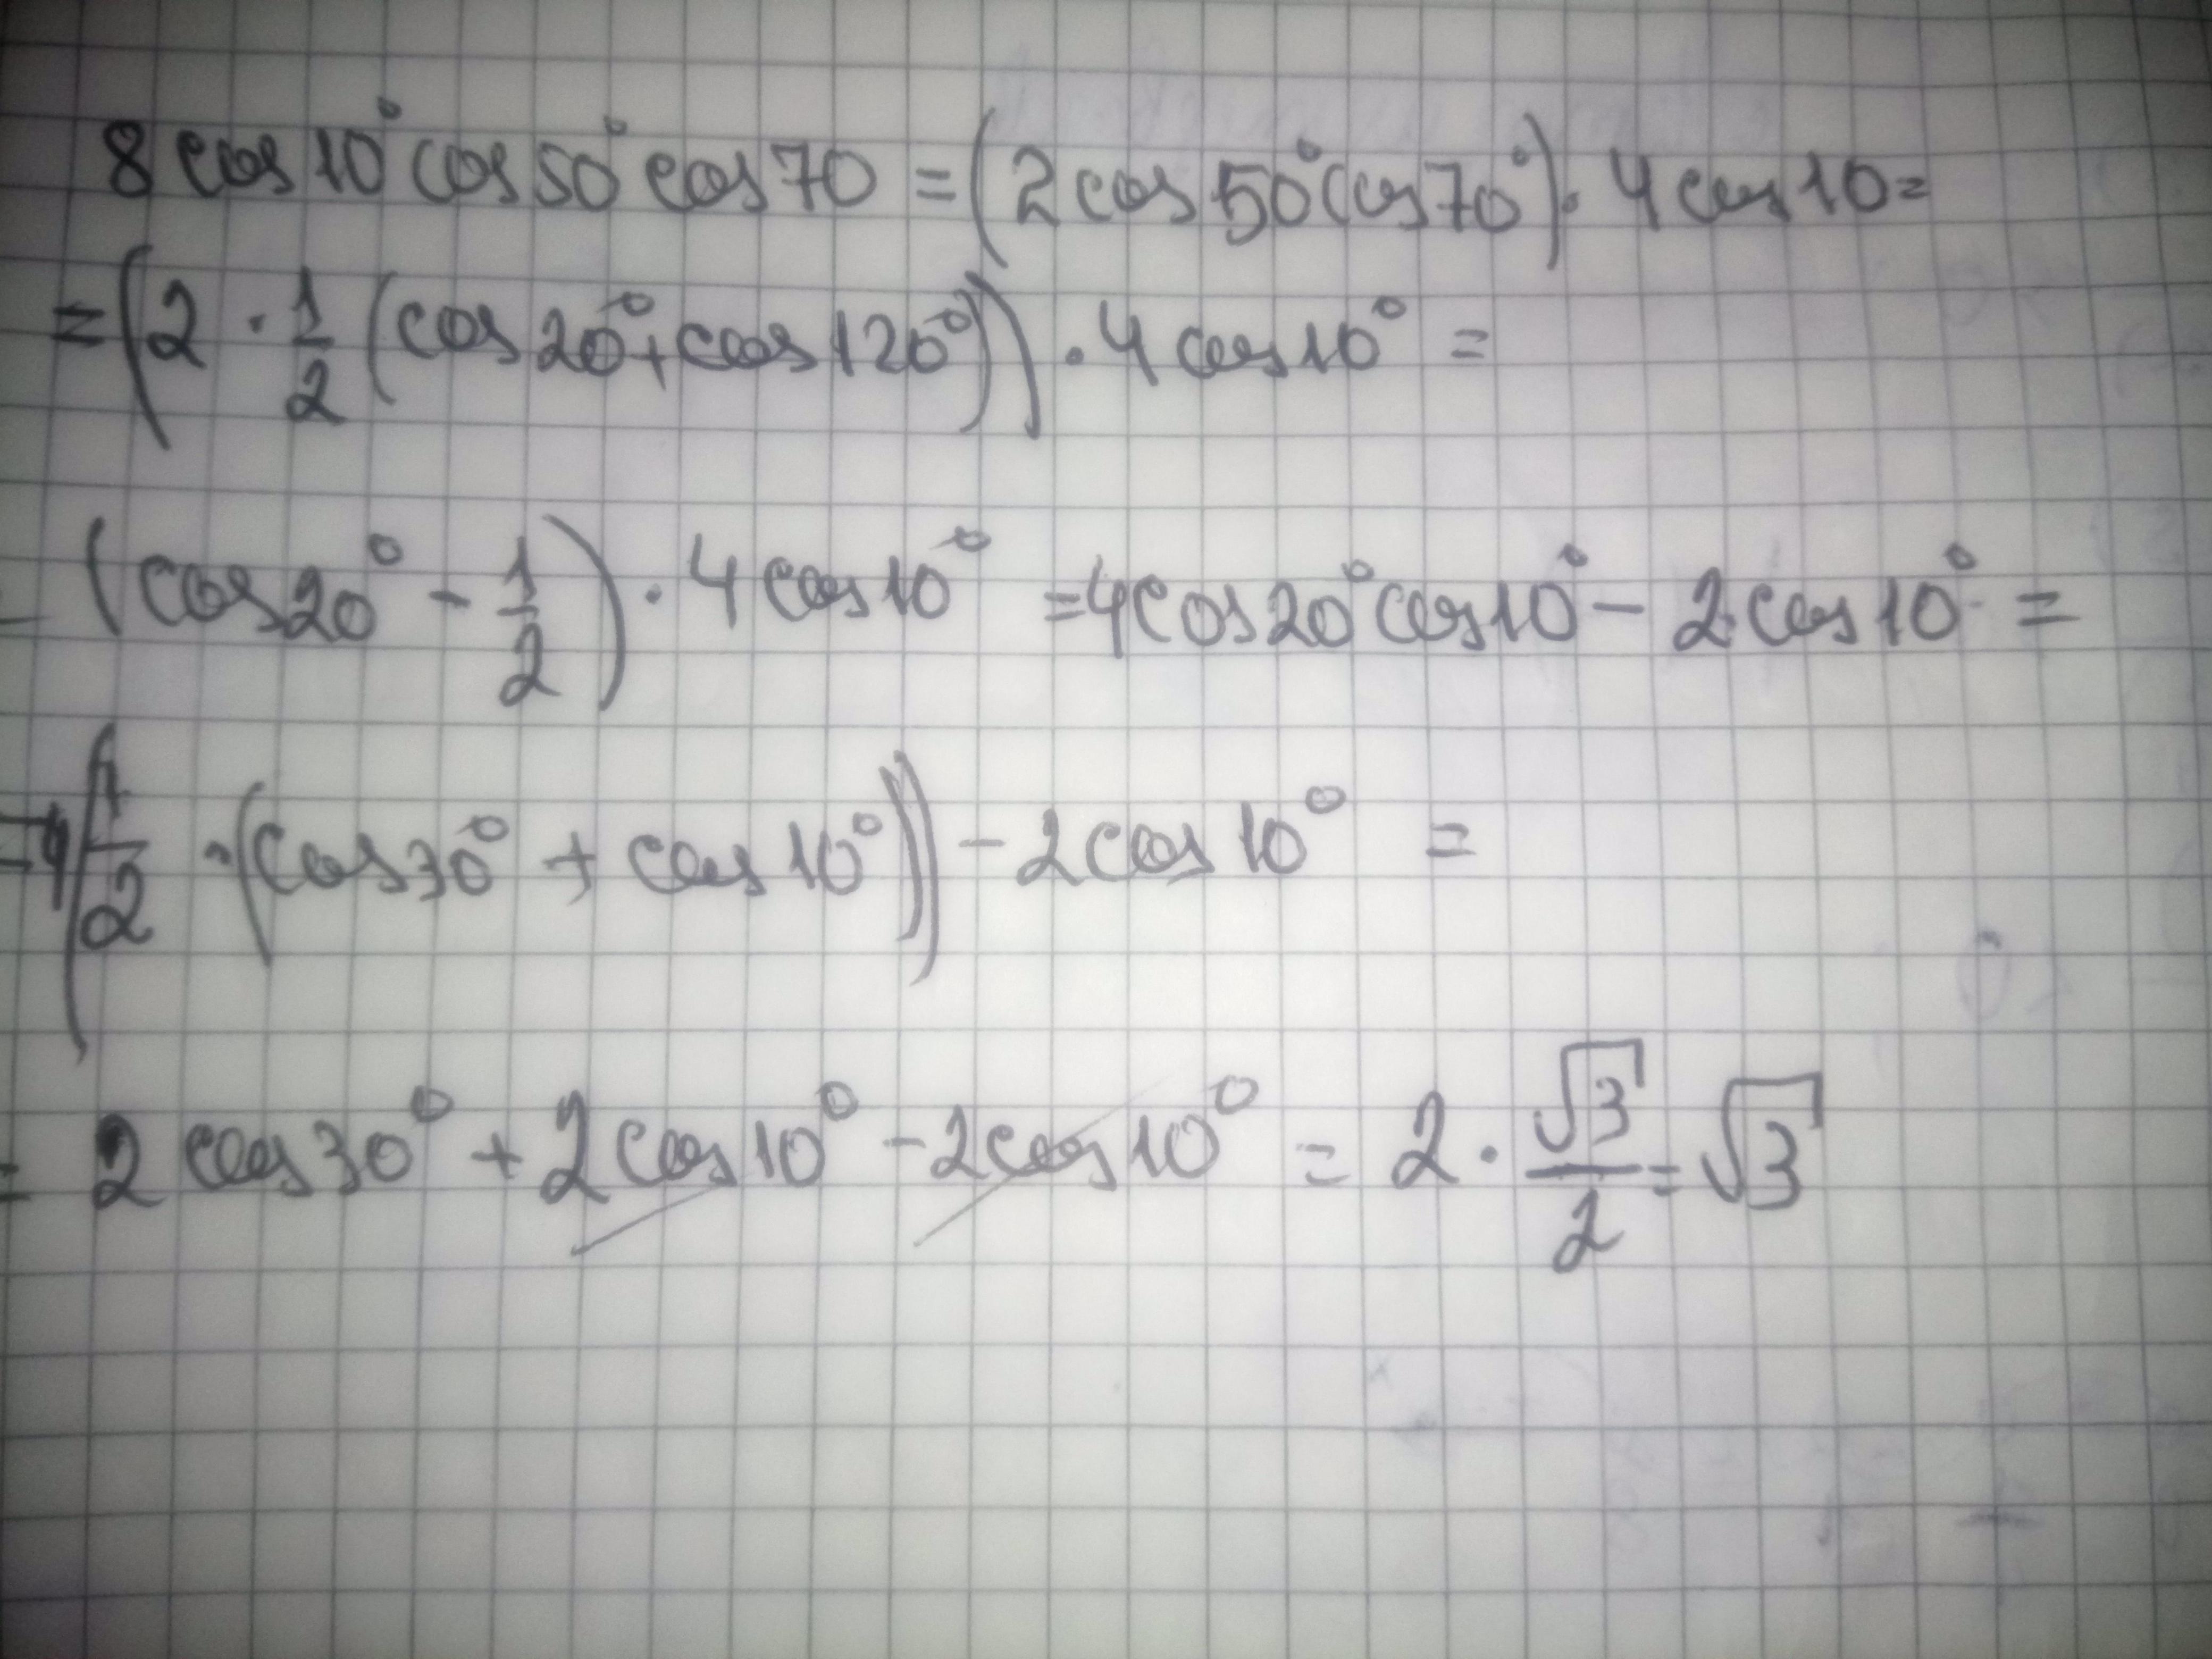 8 cos 10° cos 50° cos 70 = (2 cos 50° cos 70°) · 4 cos 10 =
= (2 · 1/2 (cos 20° + cos 120°)) · 4 cos 10° =
= (cos 20° - 1/2) · 4 cos 10° = 4 cos 20° cos 10° - 2 cos 10° =
= 4(1/2 · (cos 30° + cos 10°)) - 2 cos 10° =
= 2 cos 30° + 2 cos 10° - 2 cos 10° = 2 · √3/2 = √3